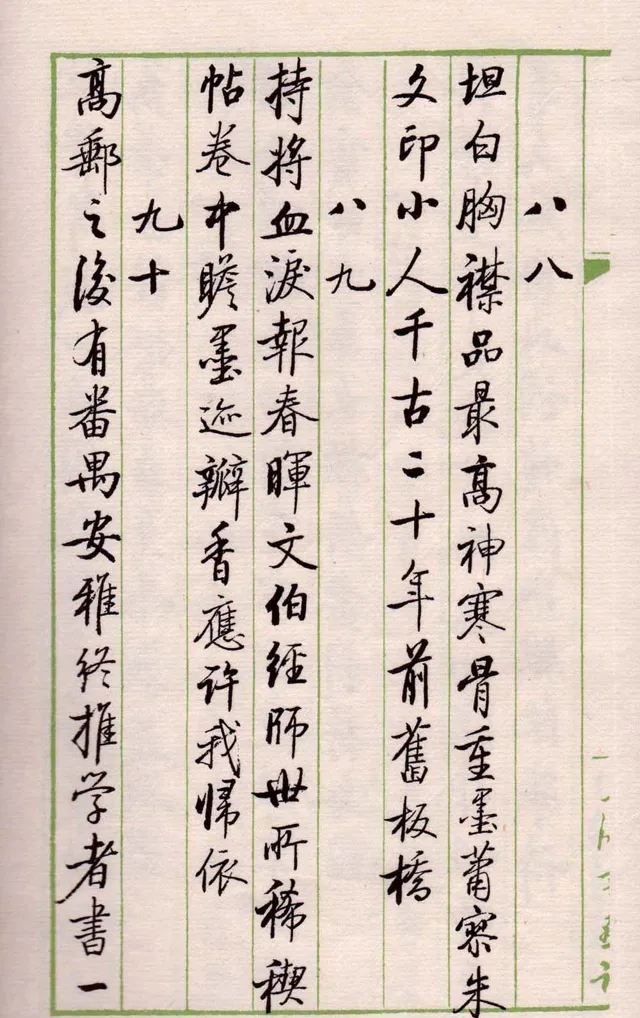 八八
坦白胸襟品最高神寒骨重墨萧寥朱
文印小人千古二十年前舊板橋
八九
持將血淚報春暉文伯經師世所稀稧
帖卷中瞻墨迹瓣香應许我归依
九十
高郵之後有番禺安雅终推学者書一